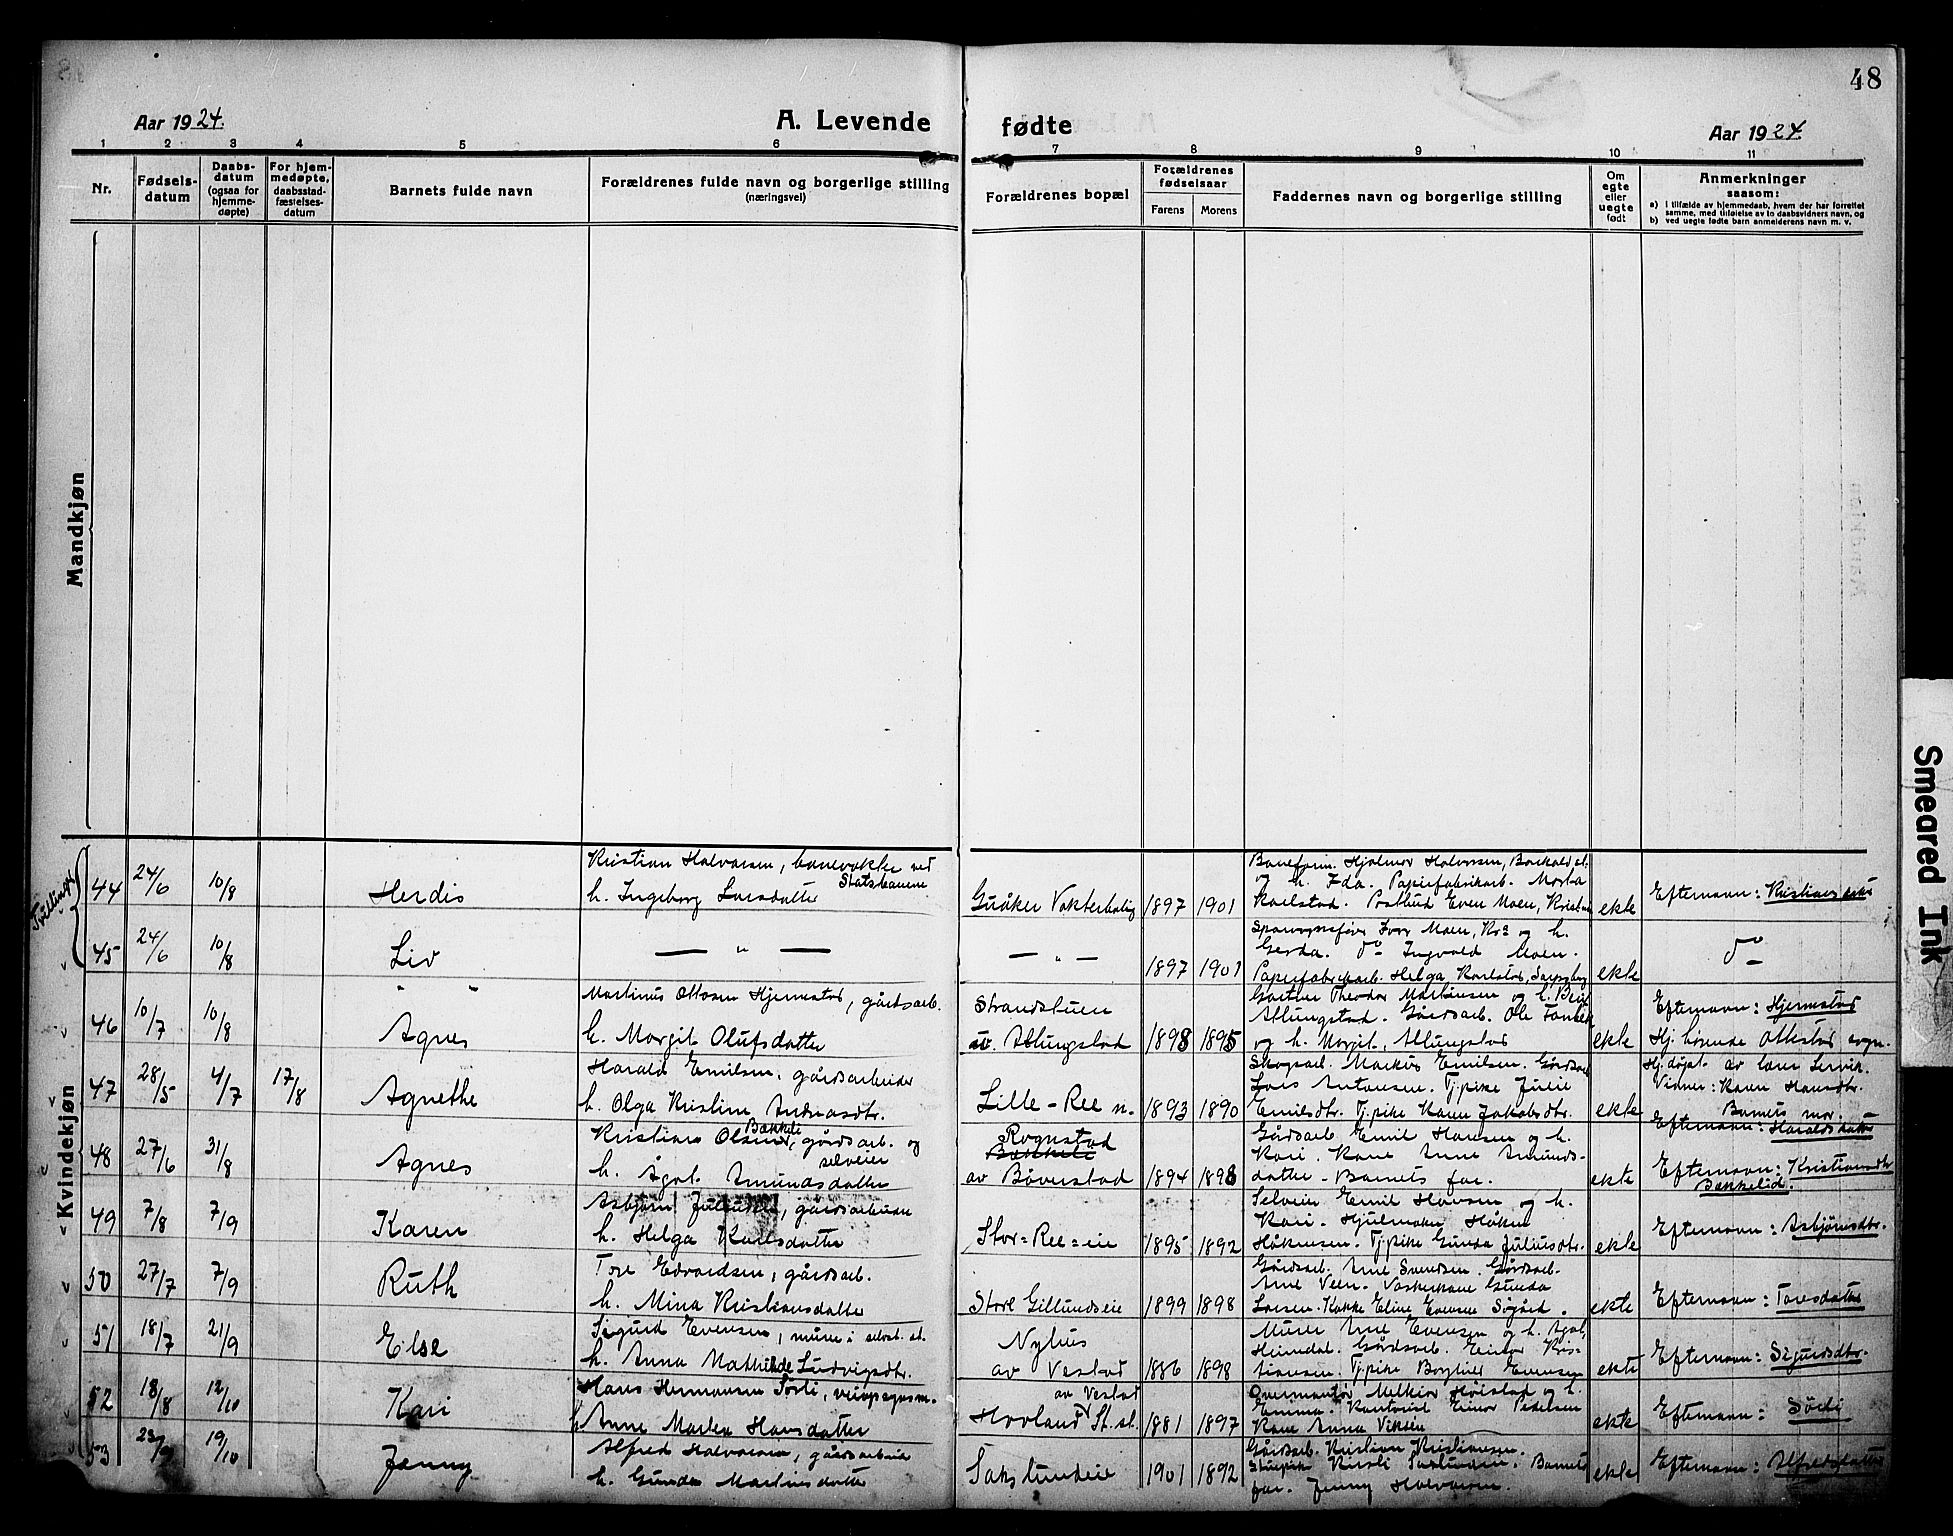 48
Aar 1924.
A. Levende fødte
Aar 1924
1 2 3 4 5 6 7 8 9 10 11
Nr.
Fødsels-
datum
Daabs-
datum
(ogsaa for
hjemme-
døpte)
For hjem-
medøpte,
daabsstad-
fæstelses-
datum
Barnets fulde navn
Forældrenes fulde navn og borgerlige stilling
(næringsvei)
Forældrenes bopæl
Forældrenes
fødselsaar
Farens Morens
Faddernes navn og borgerlige stilling
Om
egte
eller
uegte
født
Anmerkninger
saasom:
a) i tilfælde av hjemmedaab, hvem der har forrettet
samme, med tilføielse av to daabsvidners navn, og
b) ved uegte fødte barn anmelderens navn m. v.
Mandkjøn
Kvindekjøn
Tvillinger
44 24/6 10/8 Herdis
Kristian Halvorsen, banevokter ved
Statsbanene
h. Ingeborg Larsdatter
Gudker Vokterbolig 1897 1901
Baneform. Hjalmar Halvorsen,
og h. Ida. Papirfabrikarb. Marta
Karlstad. Postbud Even Moen,
ekte
Efternavn: Kristiansdatter
45 24/6 10/8 Liv
— " —
— " — 1897 1901
Ivar Moen, Kra og h.
Gerda. do Ingvald Moen.
Papirfabrikarb. Helga Karlstad, Sarpsborg
ekte
do
46 10/7 10/8 Agnes
Martinus Ottosen Hjermstad, gårdsarb.
h. Margit Olufsdatter
Strandstuen
u. Atlungstad 1898 1895
Gartner Theodor Martinsen og h.
Atlungstad. Gårdsarb. Ole
og h. Margit, Atlungstad
ekte
Efternavn: Hjermstad
Hj. hørende Ottestad sogn.
47 28/5 4/7 17/8 Agnethe
Harald Emilsen, gårdsarbeider
h. Olga Kristine Andreasdtr.
Lille-Ree n. 1893 1890
Skogsarb. Markus Emilsen. Gårdsarb
Lars Antonsen. Tj.pike Julie
Emilsdtr. Tj.pike Karen Jakobsdtr.
ekte
Hj.døpt av lærer
Vidner: Karen Hansdtr.
Barnets mor.
Efternavn: Haraldsdatter
48 27/6 31/8 Agnes
Bækkeli
Kristian Olsen, gårdsarb. og
selveier
h. Ågot Amundsdatter
Rognstad
Bækkeli
av Böverstad 1894 1898
Gårdsarb Emil Hansen og h.
Kari. Kone Anne Amunds-
datter - Barnets far.
ekte
Efternavn: Kristiansdtr
Bækkelid.
49 7/8 7/9 Karen
Asbjørn Juliussen, gårdsarbeider
h. Helga Karlsdatter
Stor-Ree-eie 1895 1892
Selveier Emil Hansen og h.
Kari. Hjulmaker Håken
Håkensen. Tj.pike Gunda Juliusdtr.
ekte
Efternavn: Asbjørnsdtr.
50 27/7 7/9 Ruth
Tore Edvardsen, gårdsarb.
h. Mina Kristiansdatter
Store Gillundseie 1899 1898
Gårdsarb. Arne Svendsen. Gårdsarb.
Arne Veen. Vaskerkone Gunda
Larsen. Kokke Eline Evensen Søgård.
ekte
Efternavn: Toresdatter
51 18/7 21/9 Else
Sigurd Evensen, murer i
h. Anna Mathilde Ludvigsdtr.
Nyhus
av Vestad 1886 1898
Murer Arne Evensen og h. Agot,
Heimdal. Gårdsarb. Einar Kris-
tiansen. Tj.pike Borghild Evensen
ekte
Efternavn: Sigurdsdtr.
52 18/8 12/10 Kari
Hans Hermansen Sørli,
h. Anne Martea Hansdatter
av Vestad
Hovland St. st. 1881 1897
Overmontør Melkior Hölstad og h.
Emma. Kontorist Einar Pedersen
Kone Anna Viksen
ekte
Efternavn: Sørli
53 23/9 19/10 Jenny
Alfred Halvorsen, gårdsarbeider
h. Gunda Martinsdatter
Sakslundeie 1901 1892
Gårdsarb. Kristian Kristiansen.
Stuepike Kirsti Sakslundeie. Barnets
far. Jenny Halvorsen.
ekte
Efternavn: Alfredsdatter
Smeared Ink